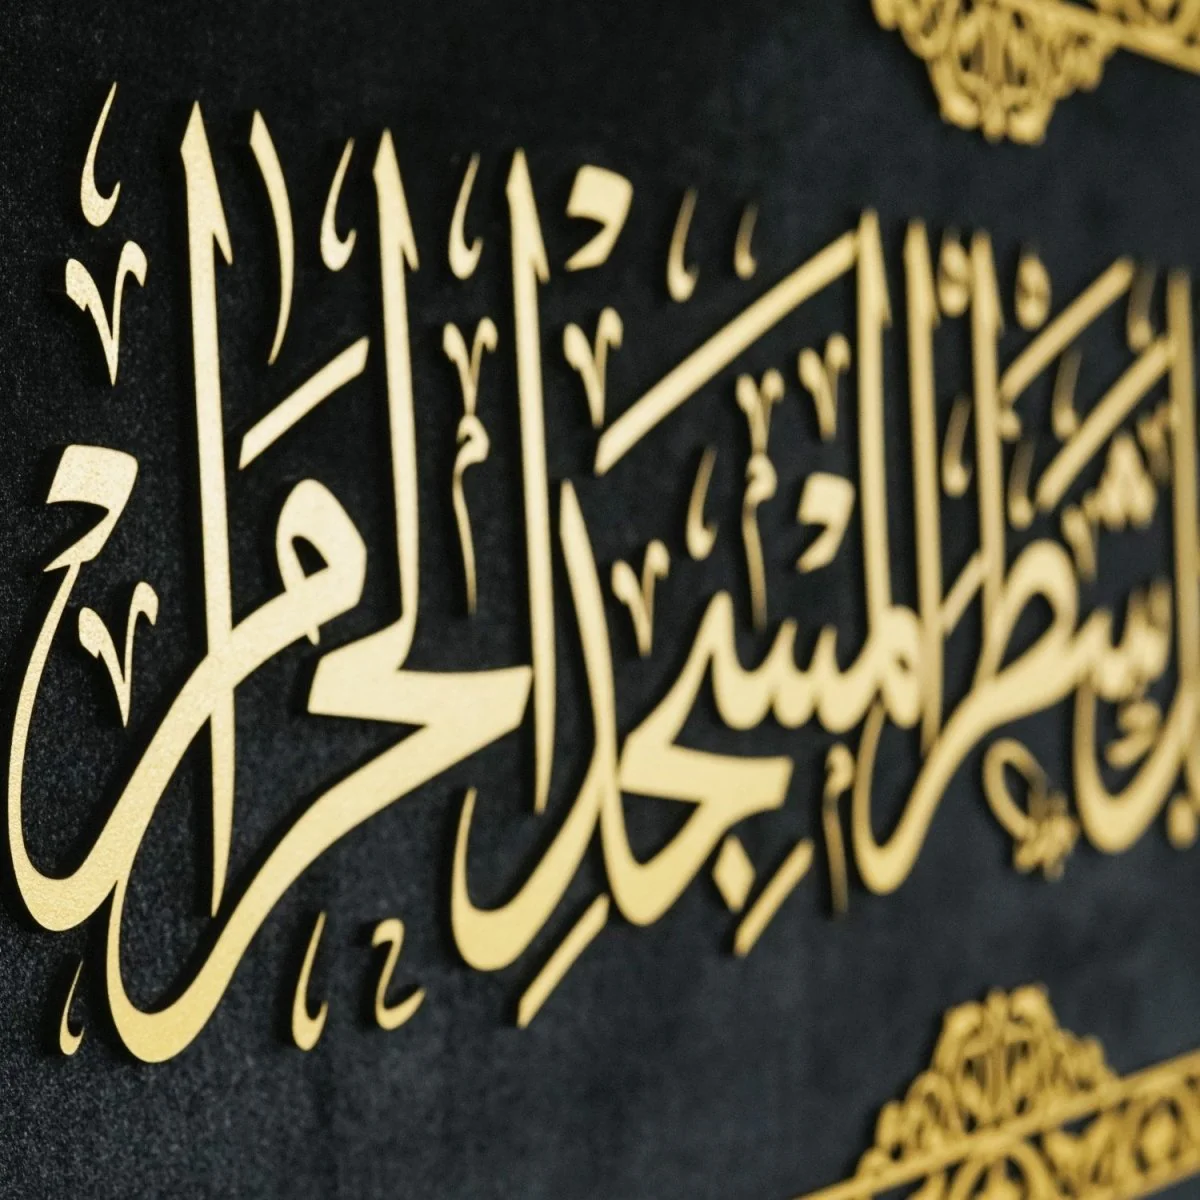 شَطْرَ الْمَسْجِدِ الْحَرَامِ